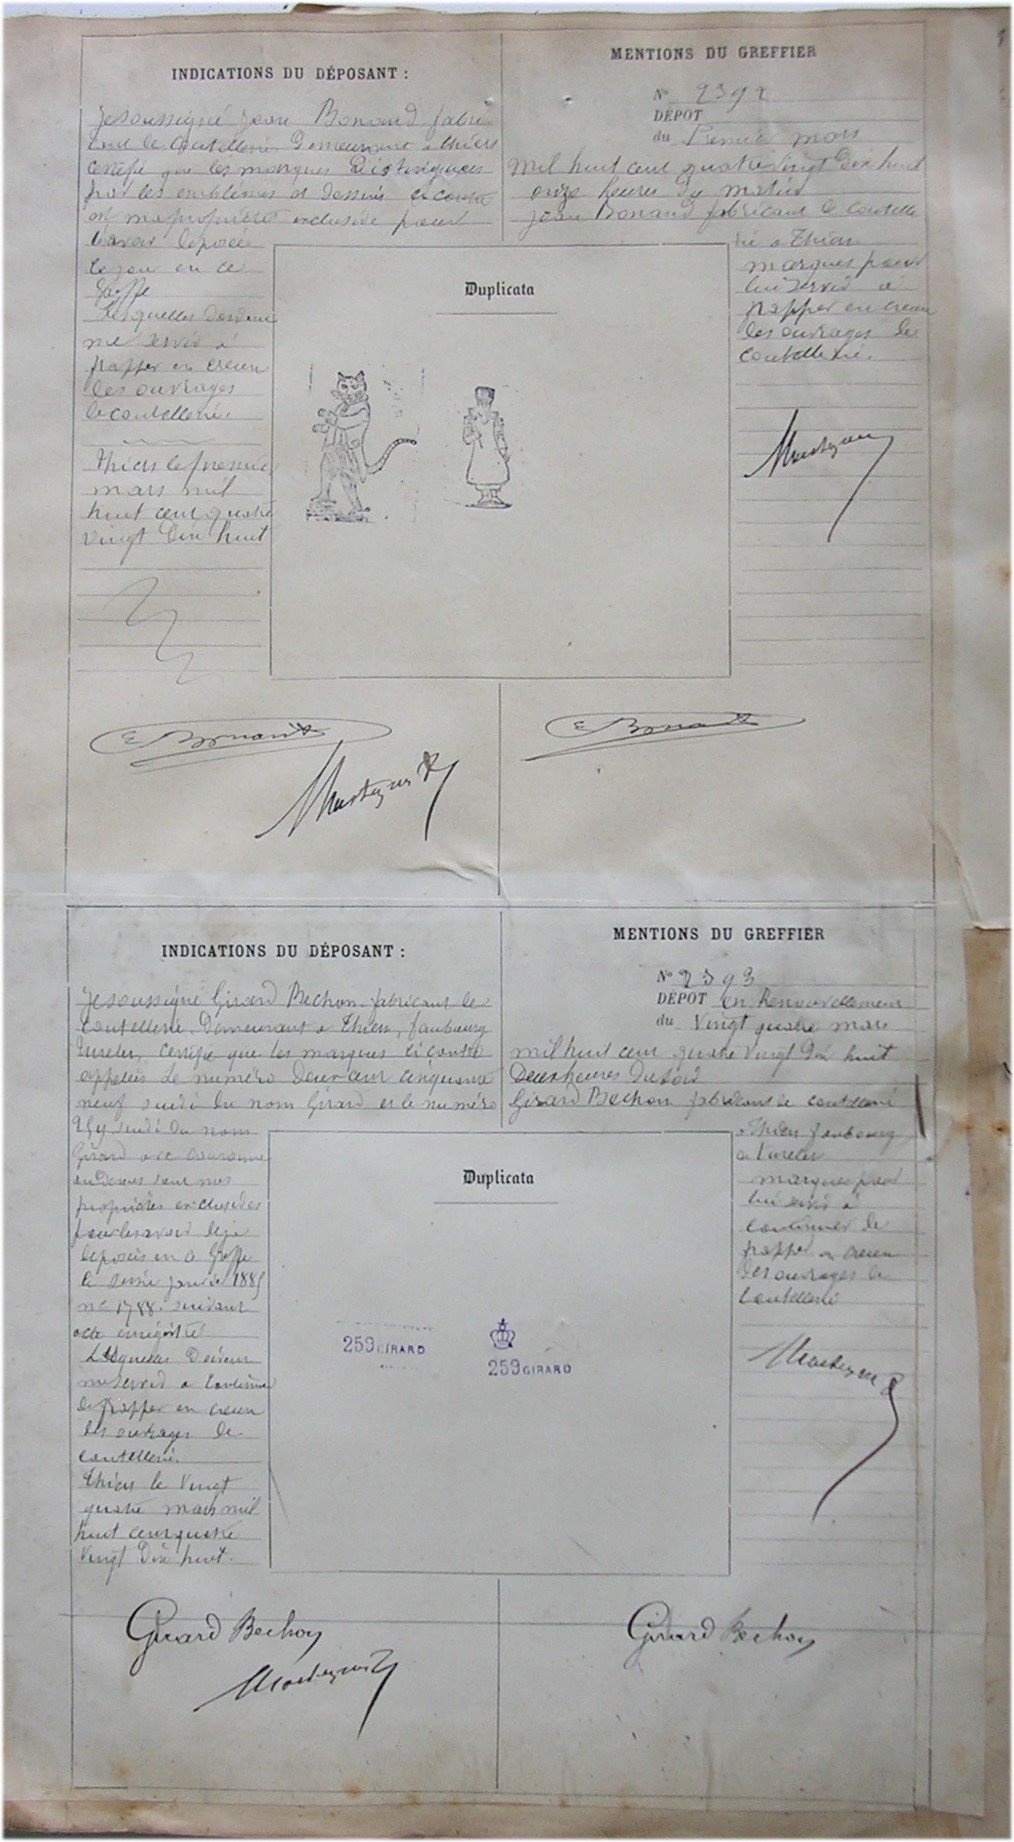 INDICATIONS DU DÉPOSANT :
Je soussigné Jean Bonand fabri
cant de Coutellerie Demeurant a thiers
certifie que les marques Distinguées
par les emblèmes et dessins ci contre
est ma propriété exclusive pour
l'avoir déposée
ce jour en ce
Greffe
Lesquelles doivent
me servir a
frapper en creux
les ouvrages
de coutellerie.
thiers le premier
mars mil
huit cent quatre
vingt dix huit
E Bonand
MENTIONS DU GREFFIER
N° 2392
DÉPÔT
du Premier mars
mil huit cent quatre vingt Dix huit
onze heures du matin
Jean Bonand fabricant de coutelle
rie a Thiers
marques pour
lui servir a
frapper en creux
les ouvrages de
coutellerie.
Duplicata
E Bonand
INDICATIONS DU DÉPOSANT :
Je soussigné Girard Bechon fabricant de
Coutellerie Demeurant a Thiers, faubourg
certifie que les marques ci contre
appelées le numéro Deux cent cinquante
neuf suivi du nom Girard et le numéro
259 suivi du nom
Girard avec couronne
au Dessus sont mes
propriétés exclusives
pour les avoir deja
déposées en ce Greffe
le janvier 1885
n° 1788. suivant
acte enregistré
Lesquelles Doivent
me servir a continuer
de frapper en creux
les ouvrages de
coutellerie.
Thiers le Vingt
quatre mars mil
huit cent quatre
Vingt Dix huit.
Girard Bechon
MENTIONS DU GREFFIER
N° 2393
DÉPÔT en Renouvellement
du Vingt quatre mars
mil huit cent quatre Vingt Dix huit
Deux heures Du soir
Girard Bechon fabricant de coutellerie
a Thiers faubourg
marques pour
lui servir a
continuer de
frapper en creux
des ouvrages de
Coutellerie
Duplicata
259 GIRARD
259 GIRARD
Girard Bechon